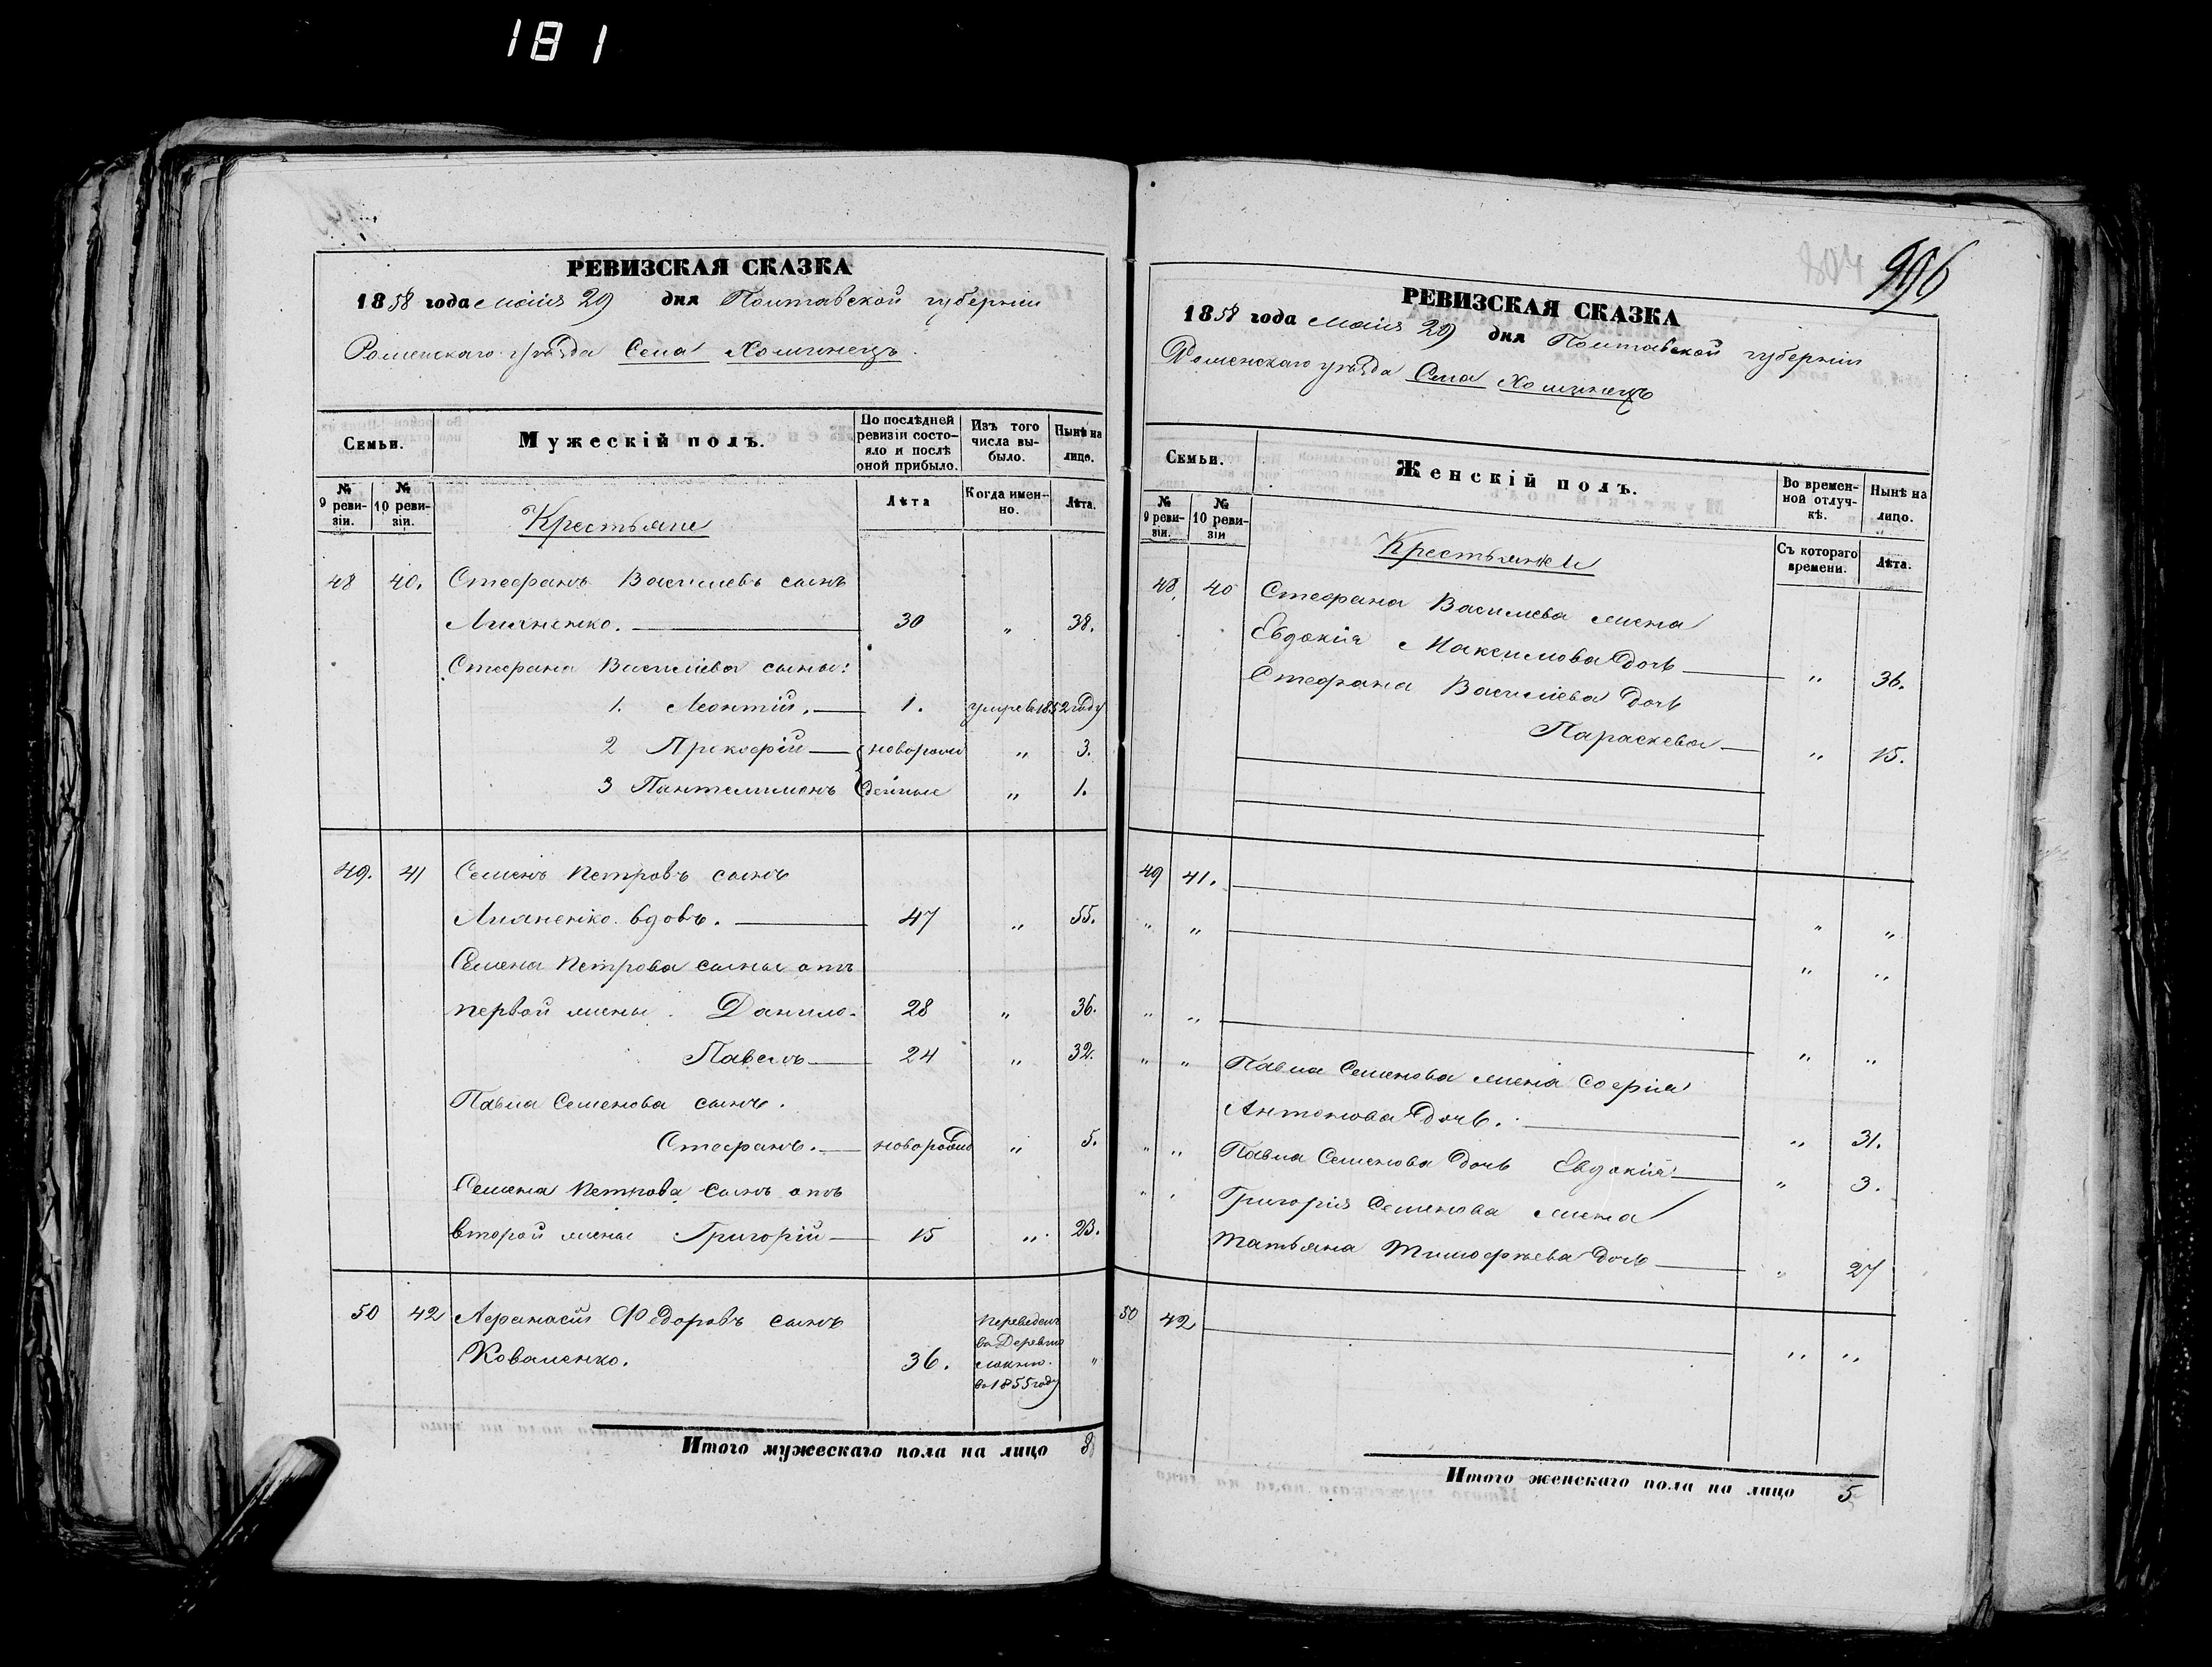 181
РЕВИЗСКАЯ СКАЗКА
1858 года маія 29 дня Полтавской губерніи
Роменскаго уѣзда Села Хоминецъ
Семьи.
Мужескій полъ.
По послѣдней ревизіи состояло и послѣ оной прибыло.
Изъ того числа выбыло.
Нынѣ на лицо.
№ 9 ревизіи.
№ 10 ревизіи.
Крестьяне
Лѣта
Когда именно.
Лѣта.
48 40. Стефанъ Василевъ сынъ
Лияненко. 30 " 38.
Стефана Василіева сыны:
1. Леонтій. 1. умре въ 1852 году
2 Прокофій новорож " 3.
3 Пантелимонъ денные " 1.
49. 41 Семенъ Петровъ сынъ
Лияненко вдовъ. 47 " 55.
Семена Петрова сыны отъ
первой жены. Данило 28 " 36.
Павелъ 24 " 32.
Павла Семенова сынъ.
Стефанъ. новорожд " 5.
Семена Петрова сынъ отъ
второй жены Григорій 15 " 23.
50 42 Афанасій Федоровъ сынъ
Коваленко. 36. переведенъ
въ Деревню
въ 1855 году "
Итого мужескаго пола на лицо 8
804
996
РЕВИЗСКАЯ СКАЗКА
1858 года маія 29 дня Полтавской губерніи
Роменскаго уѣзда Села Хоминецъ
Семьи.
Женскій полъ.
Во временной отлучкѣ.
Нынѣ на лицо.
№ 9 ревизіи.
№ 10 ревизіи
Крестьянки
Съ котораго времени.
Лѣта.
48. 40 Стефана Василева жена
Евдокія Максимова дочь " 36.
Стефана Василіева дочь
Параскева " 15.
49 41.
" " " "
" "
" " " "
" " Павла Семенова жена Софія
Антонова дочь. " 31.
" " Павла Семенова дочь Евдокія " 3.
" " Григорія Семенова жена
Татьяна Тимофѣева дочь " 27
50 42 " "
Итого женскаго пола на лицо 5